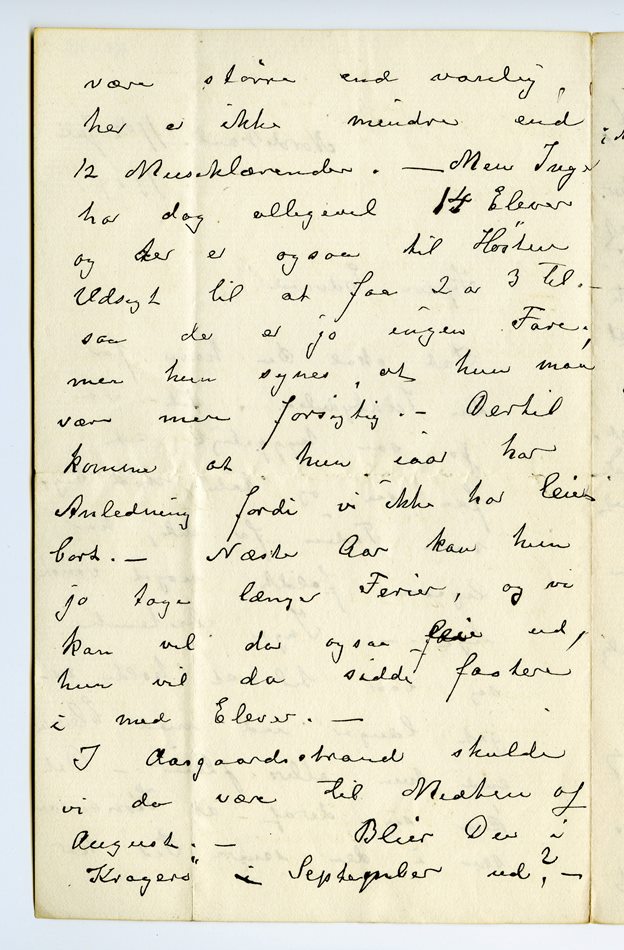 være større end vanlig,
her er ikke mindre end
12 Musiklærerinder. — Men Inger
har dog allegevel 14 Elever
og der er ogsaa til Høsten
Udsigt til at faa 2 a 3 til. —
saa der er jo ingen Fare,
men hun synes, at hun maa
være mere forsigtig. — Dertil
kommer at hun iaar har
Anledning fordi vi ikke har leiet
bort. — Næste Aar kan hun
jo tage længer Ferier, og vi
kan vel da ogsaa leie ud,
hun vil da sidde fastere
i med Elever. —
I Aasgaardsstrand skulde
vi da være til Midten af
August. — Blier Du i
Kragerö i September ud? —